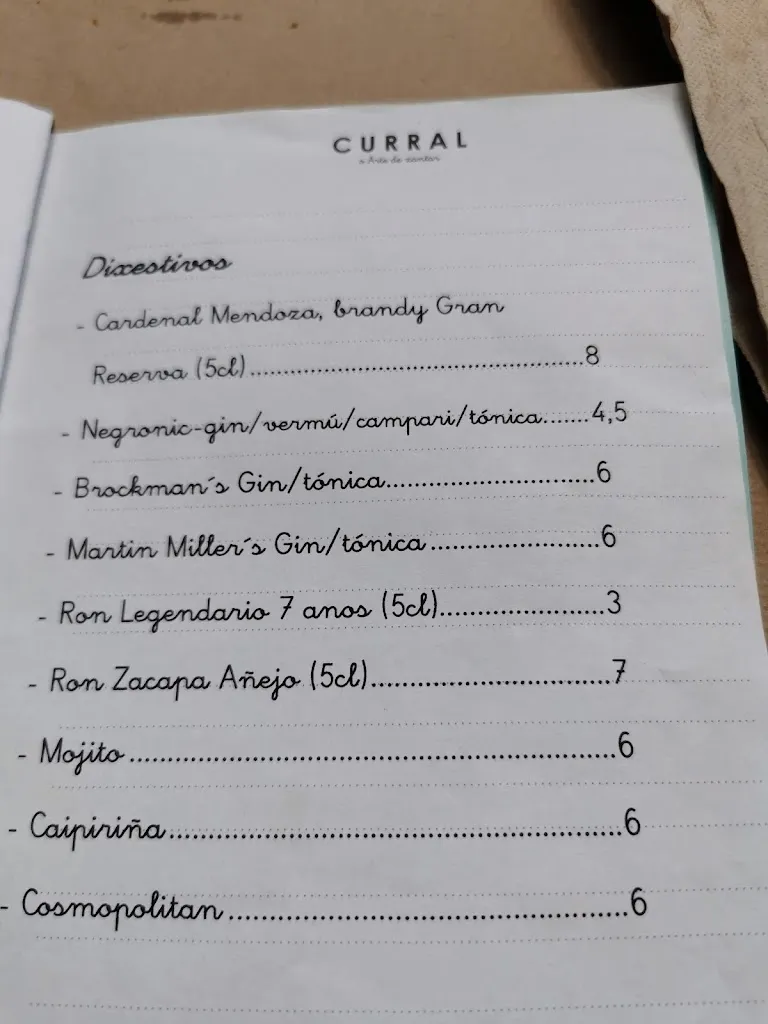 CURRAL
a Arte de xantar
Dixestivos
- Cardenal Mendoza, brandy Gran
Reserva (5cl)..........................................8
- Negronic-gin/vermú/campari/tónica.......4,5
- Brockman´s Gin/tónica..........................6
- Martin Miller´s Gin/tónica.....................6
- Ron Legendario 7 anos (5cl)....................3
- Ron Zacapa Añejo (5cl).............................7
- Mojito..........................................................6
- Caipiriña......................................................6
- Cosmopolitan..............................................6